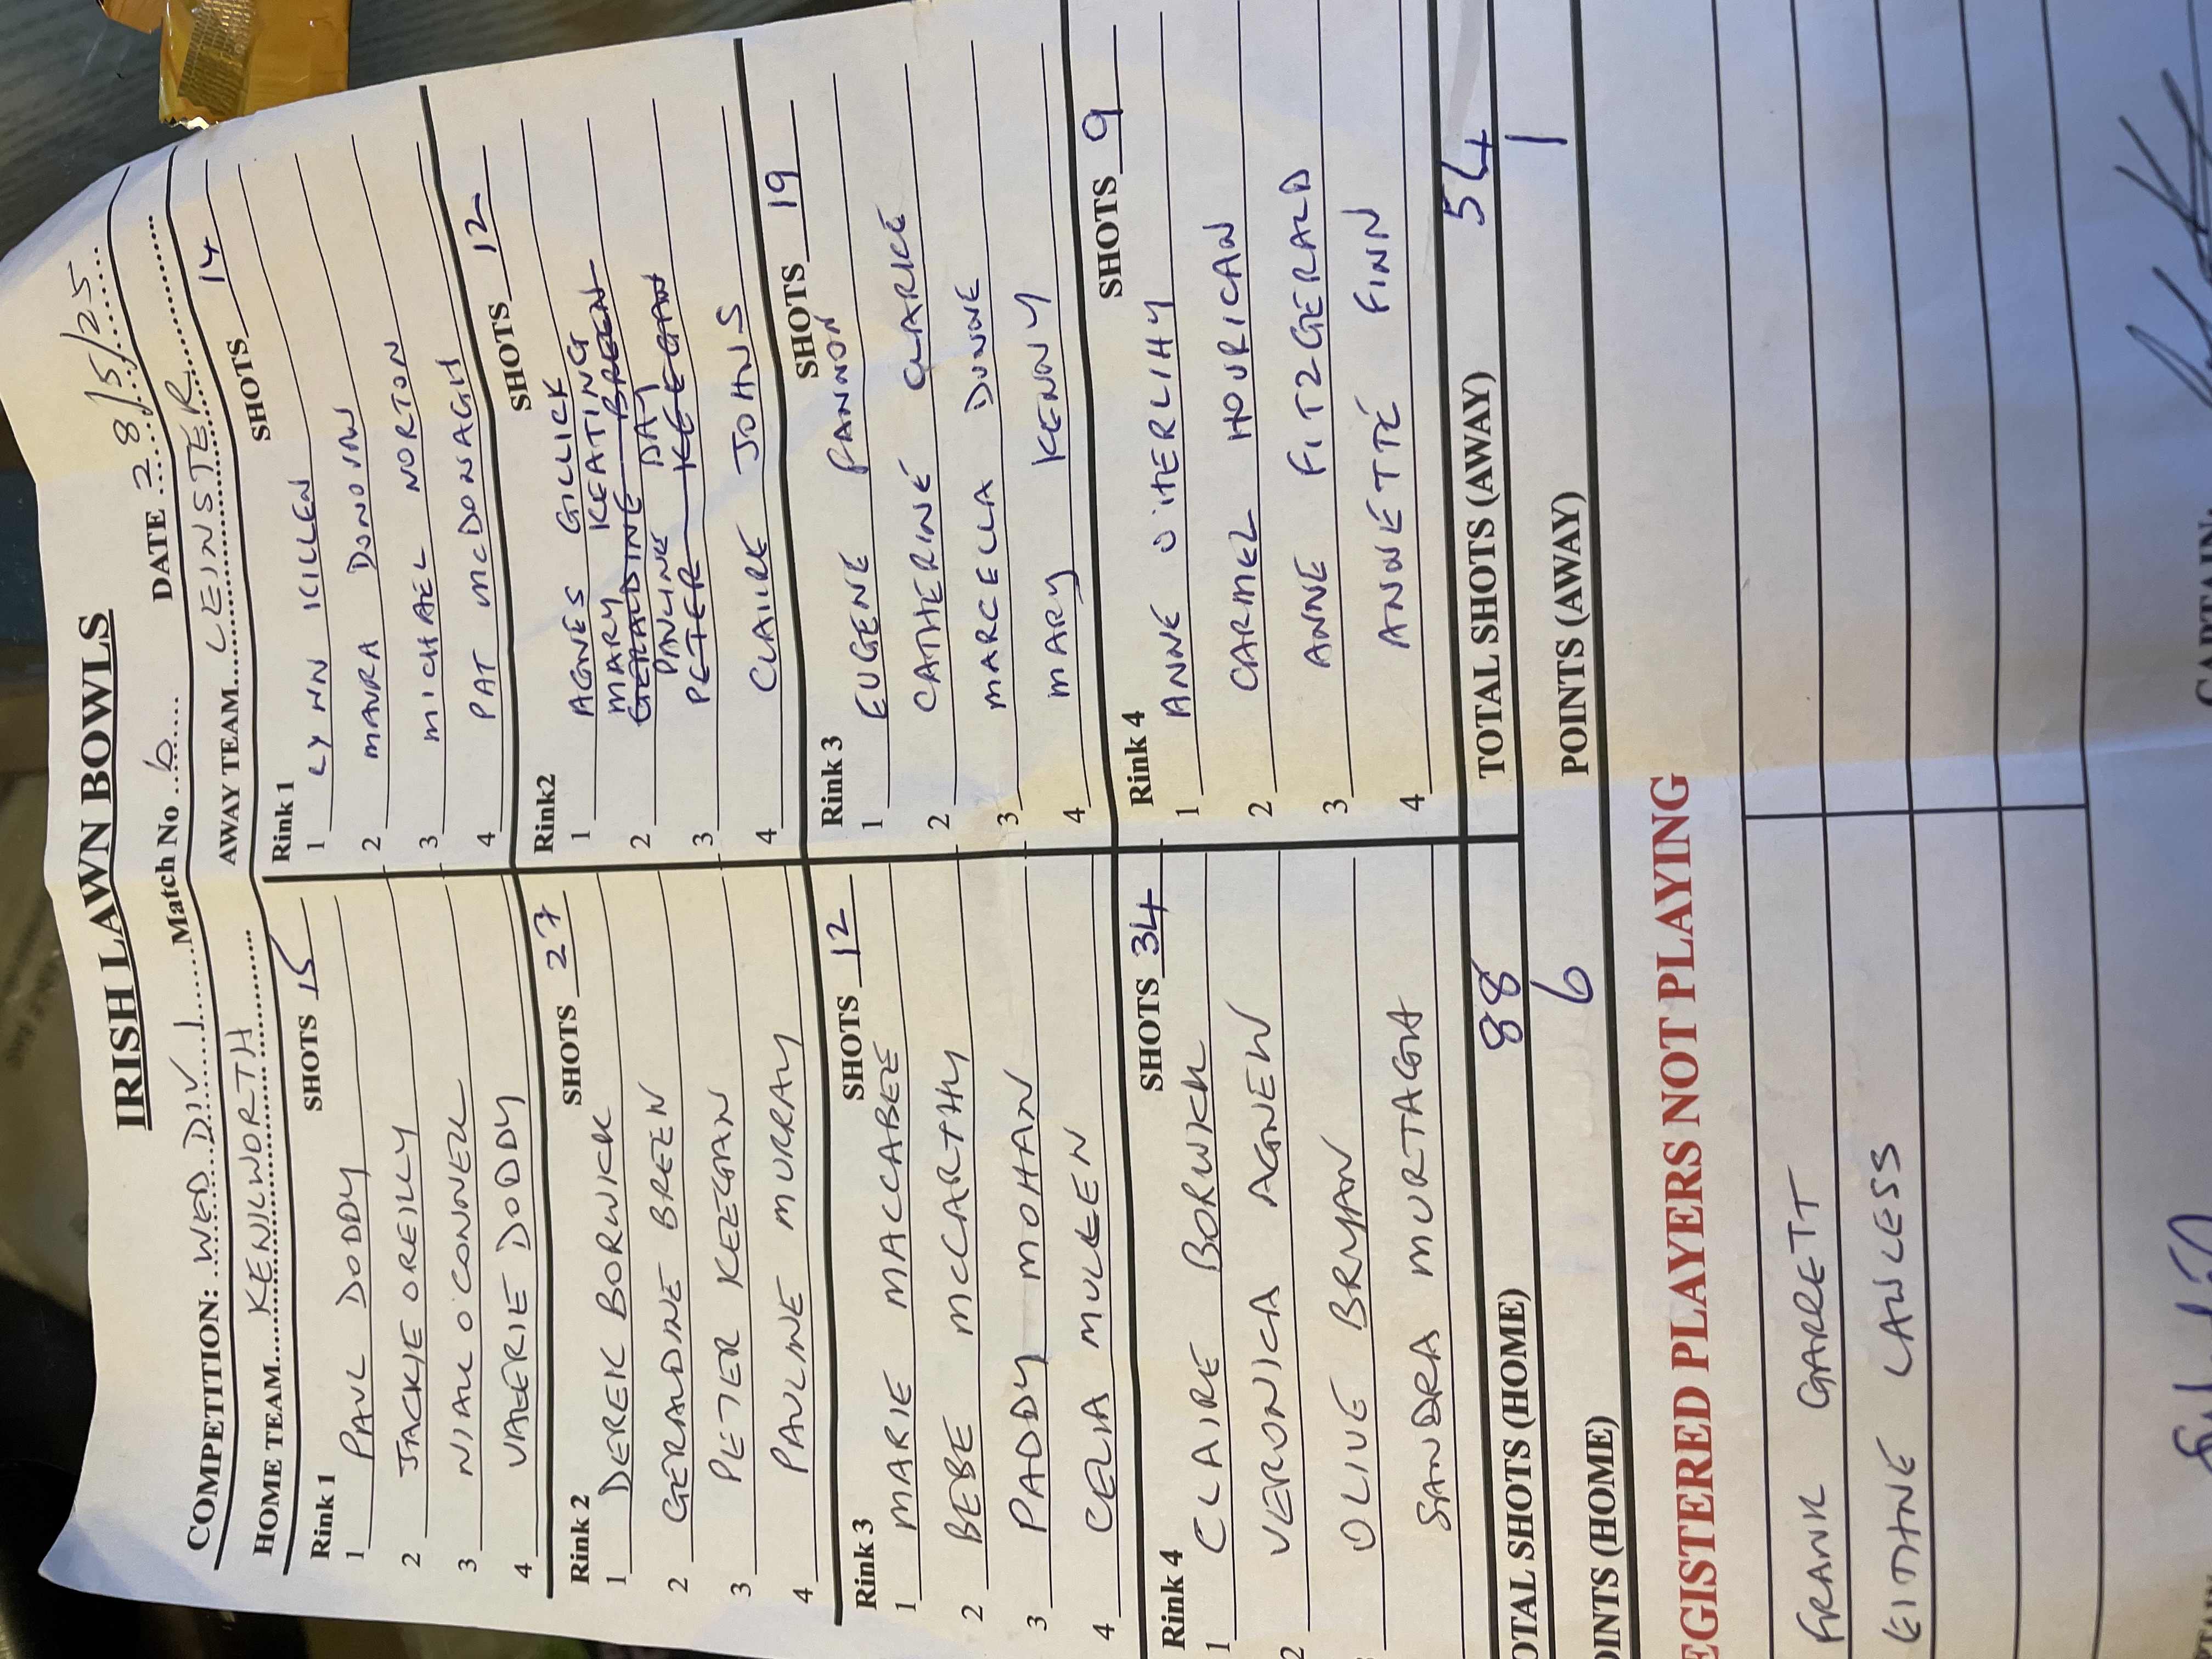 IRISH LAWN BOWLS
COMPETITION: WED DIV 1 Match No 6 DATE 28/5/25
HOME TEAM KENILWORTH AWAY TEAM LEINSTER
Rink 1 SHOTS 15
1 PAUL DODDY
2 JACKIE OREILLY
3 NIALL O'CONNELL
4 VALERIE DODDY
Rink 2 SHOTS 27
1 DEREK BORWICK
2 GERALDINE BREEN
3 PETER KEEGAN
4 PAULINE MURRAY
Rink 3 SHOTS 12
1 MARIE MACCABEE
2 BEBE MCCARTHY
3 PADDY MOHAN
4 CELIA MULLEN
Rink 4 SHOTS 34
1 CLAIRE BORWICK
2 VERONICA AGNEW
OLIVE BRYAN
SANDRA MURTAGH
OTAL SHOTS (HOME) 88
OINTS (HOME) 6
Rink 1 SHOTS 14
1 LYNN KILLEN
2 MAURA DONOVAN
3 MICHAEL NORTON
4 PAT MCDONAGH
Rink2 SHOTS 12
1 AGNES GILLICK
MARY KEATING
2 GERALDINE BREEN
PAULINE DAY
3 PETER KEEGAN
4 CLAIRE JOHNS
Rink 3 SHOTS 19
1 EUGENE FANNON
2 CATHERINE CLARKE
3 MARCELLA DUNNE
4 MARY KENNY
Rink 4 SHOTS 9
1 ANNE O'HERLIHY
2 CARMEL HOURICAN
3 ANNE FITZGERALD
4 ANNETTE FINN
TOTAL SHOTS (AWAY) 54
POINTS (AWAY) 1
EGISTERED PLAYERS NOT PLAYING
FRANK GARRETT
EITHNE LAWLESS
CAPTAIN: